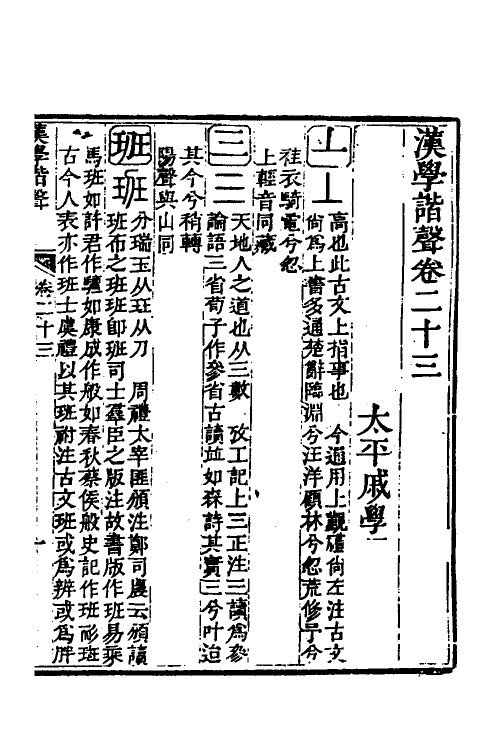 漢學諧聲卷二十三
太平戚學
丄 丄 高也此古文上指事也 今通用上觀礼尙左注古文
尙爲上書多通楚辭臨淵兮汪洋顧林兮忽荒修予兮
袿衣騎電兮忽
上輕音同藏
三 三 天地人之道也从三數 攷工記上三正注三讀爲參
論語三省荀子作參省古讀並如森詩其實三兮叶迨
其今兮稍轉
陽聲與山同
班 班 分瑞玉从玨从刀 周禮太宰匪頒注鄭司農云頒讀
班布之班班卽班司士羣臣之版注故書版作班易乘
馬班如許君作驙如康成作般如春秋蔡侯般史記作班彪班
古今人表亦作班士虞禮以其班祔注古文班或爲辨或爲胖
漢學諧聲
卷二十三
一